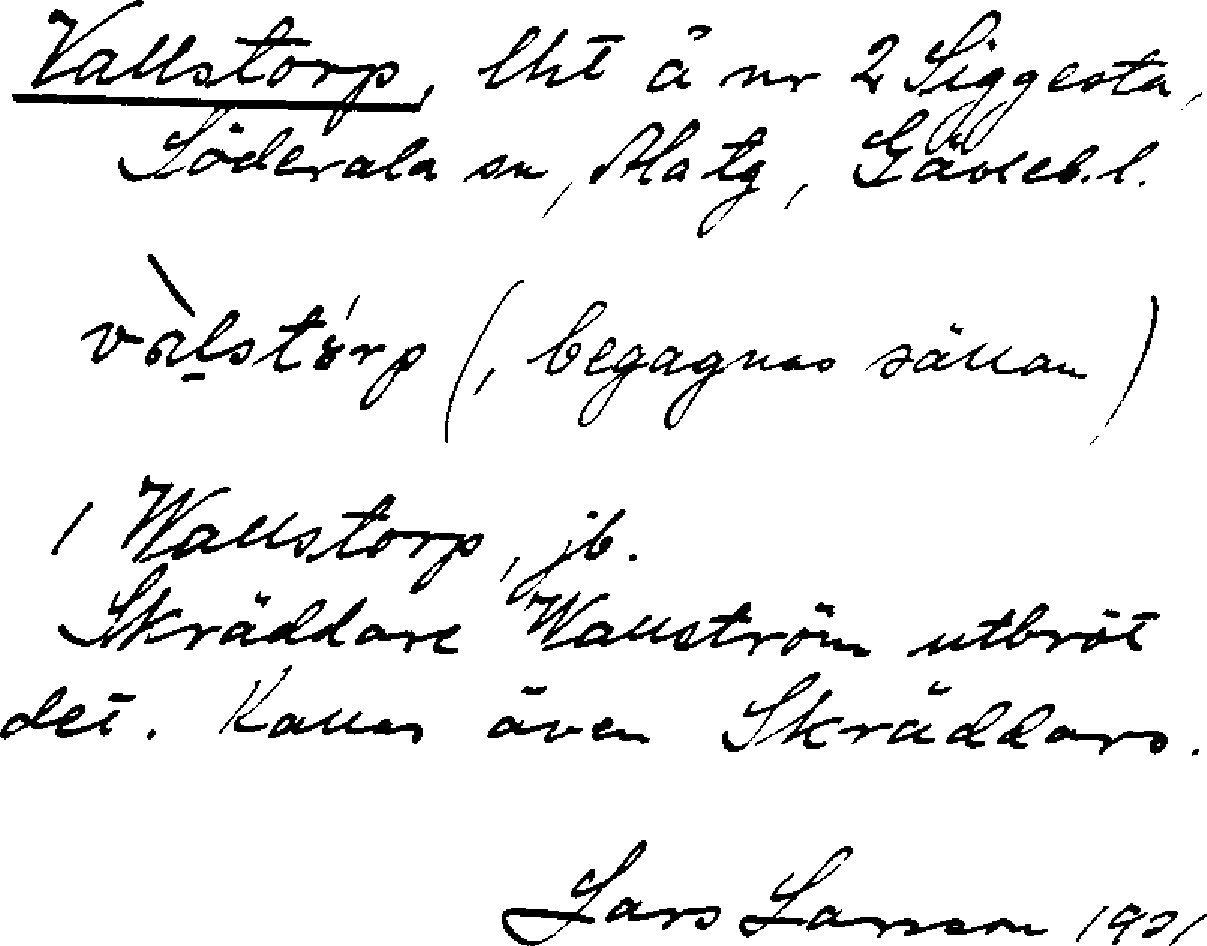 Vallstorp, lht å nr 2 Siggesta,
Söderala sn, Ala tg, Gävleb. l.
vàlstórp (, begagnas sällan)
1 Wallstorp, jb.
Skräddare Wallström utbröt
det. Kallas även Skräddars.
Lars Larsson 1931